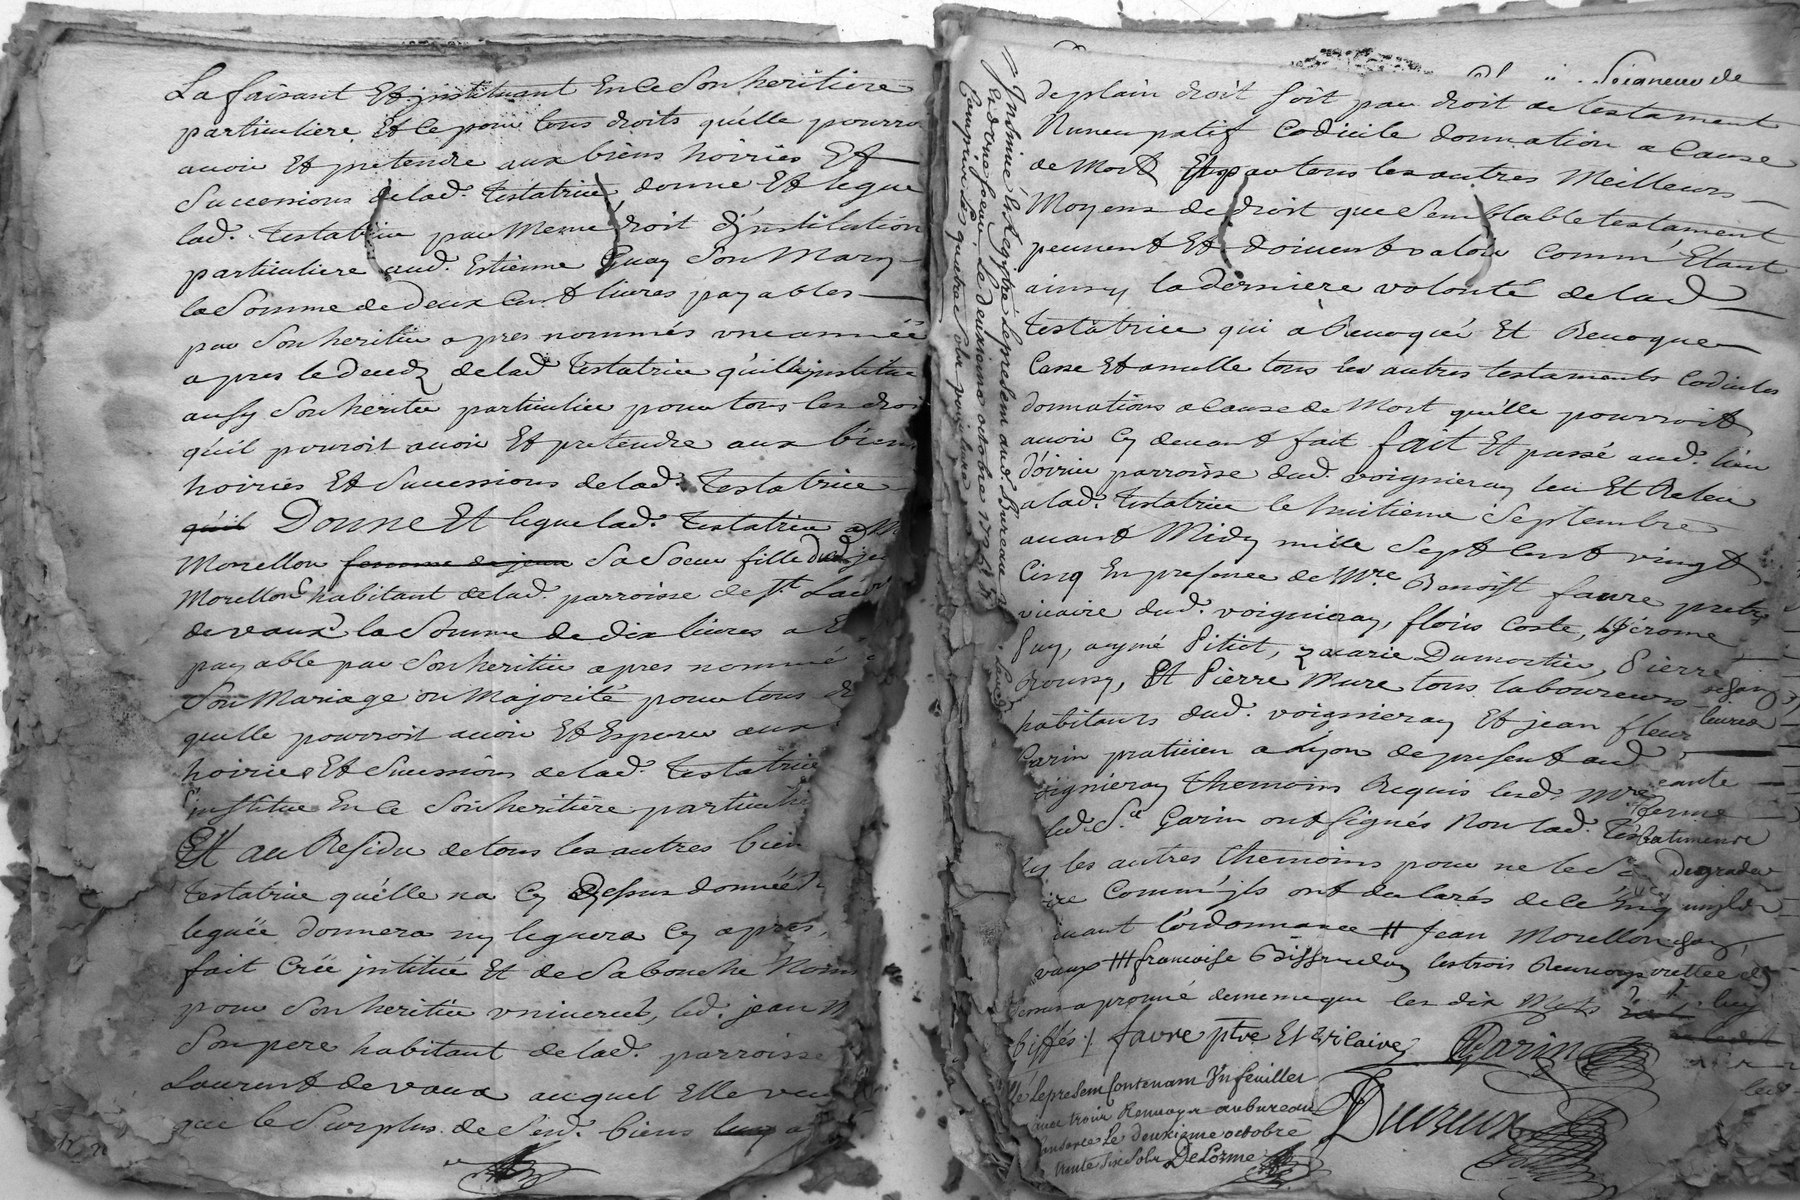 La faisant Et jnstituant En ce Son heritiere
particuliere Et ce pour tous droits qu'elle pourra
avoir Et pretendre aux biens hoiries Et
Successions de lad. Testatrice, donne Et legue
lad. Testatrice par Meme droit d'jnstitution
particuliere aud. Estienne Guay Son Mary
la Somme de deux Cent livres payables
par Son heritier apres nommés vne année
apres le deceds de lad. Testatrice qu'elle jnstitue
aussy Son heritier particulier pour tous les droi
qu'il pouroit avoir Et pretendre aux biens
hoiries Et Successions de lad. Testatrice
qu'il Donne Et legue lad. Testatrice a M
Morellon femme de jean Sa Soeur fille dud. je
Morellon habitant de lad. parroisse de St. Laur
de vaux la Somme de dix livres a E
payable par Son heritier apres nommé
Son Mariage ou Majorité pour tous dr
qu'elle pourroit avoir Et Esperer aux
hoiries Et Successions de lad. Testatrice
l'institue En ce Son heritière particuli
Et au Residu de tous les autres bien
Testatrice qu'elle na Cy Dessus donnée
leguée donnera ny leguera Cy apres,
fait Crée jntitue Et de Sa bouche Nom
pour Son heritier vniversel, led. jean M
Son pere habitant de lad. parroisse
Laurent de vaux auquel Elle veu
que le Surplus de Sesd. biens
Jnsinué Et Regitré le present aud. Bureau
Et donne Sceau. Le deuxieme octobre 1725
Compris les quatre Sols pour livre
Seigneur de
de plain droit Soit par droit de testament
Nuncupatif Codicile donnation a Cause
de Mort Et par tous les autres Meilleurs
Moyens de droit que Semblable testament
peuvent Et doivent valoir Comm' Etant
ainsy la derniere volonté de lad.
Testatrice qui a Revoqué Et Revoque
Casse Et anulle tous les autres testaments Codiciles
donnations a Cause de Mort qu'elle pourroit
avoir Cy devant fait fait Et passé aud. lieu
d'oirieu parroisse dud. voignieray leu Et Releu
a lad. Testatrice le huitieme Septembre
avant Midy mille Sept Cent vingt
Cinq En presence de Mre Benoist favre pretre
vicaire dud. voignieray, floris Coste, Jérome
Guy, aymé Pitiot, zacarie Dumortier, Pierre
Broussy, Et Pierre Mure tous laboureurs
habitants dud. voignieray Et jean fleur
Garin praticien a Lyon de present aud.
oignieray Themoins Requis lesd. Mre
led. Sr. Garin ont signés Non lad. Tes
ny les autres themoins pour ne le S
ire Comm' jls ont declarés de ce Enq
ivant l'ordonnance # Jean Morellon
vaux ### francoise les trois Renvoys
dessus aprouvé de meme que les dix Mots
biffés ./. favre ptre Et vicaire Garin
lé le present Contenant Vn feuillet
avec trois Renvoys au bureau
le deuxieme octobre
trente Six Sols DeLorme
Ducreux
ferme
batiments
degrader